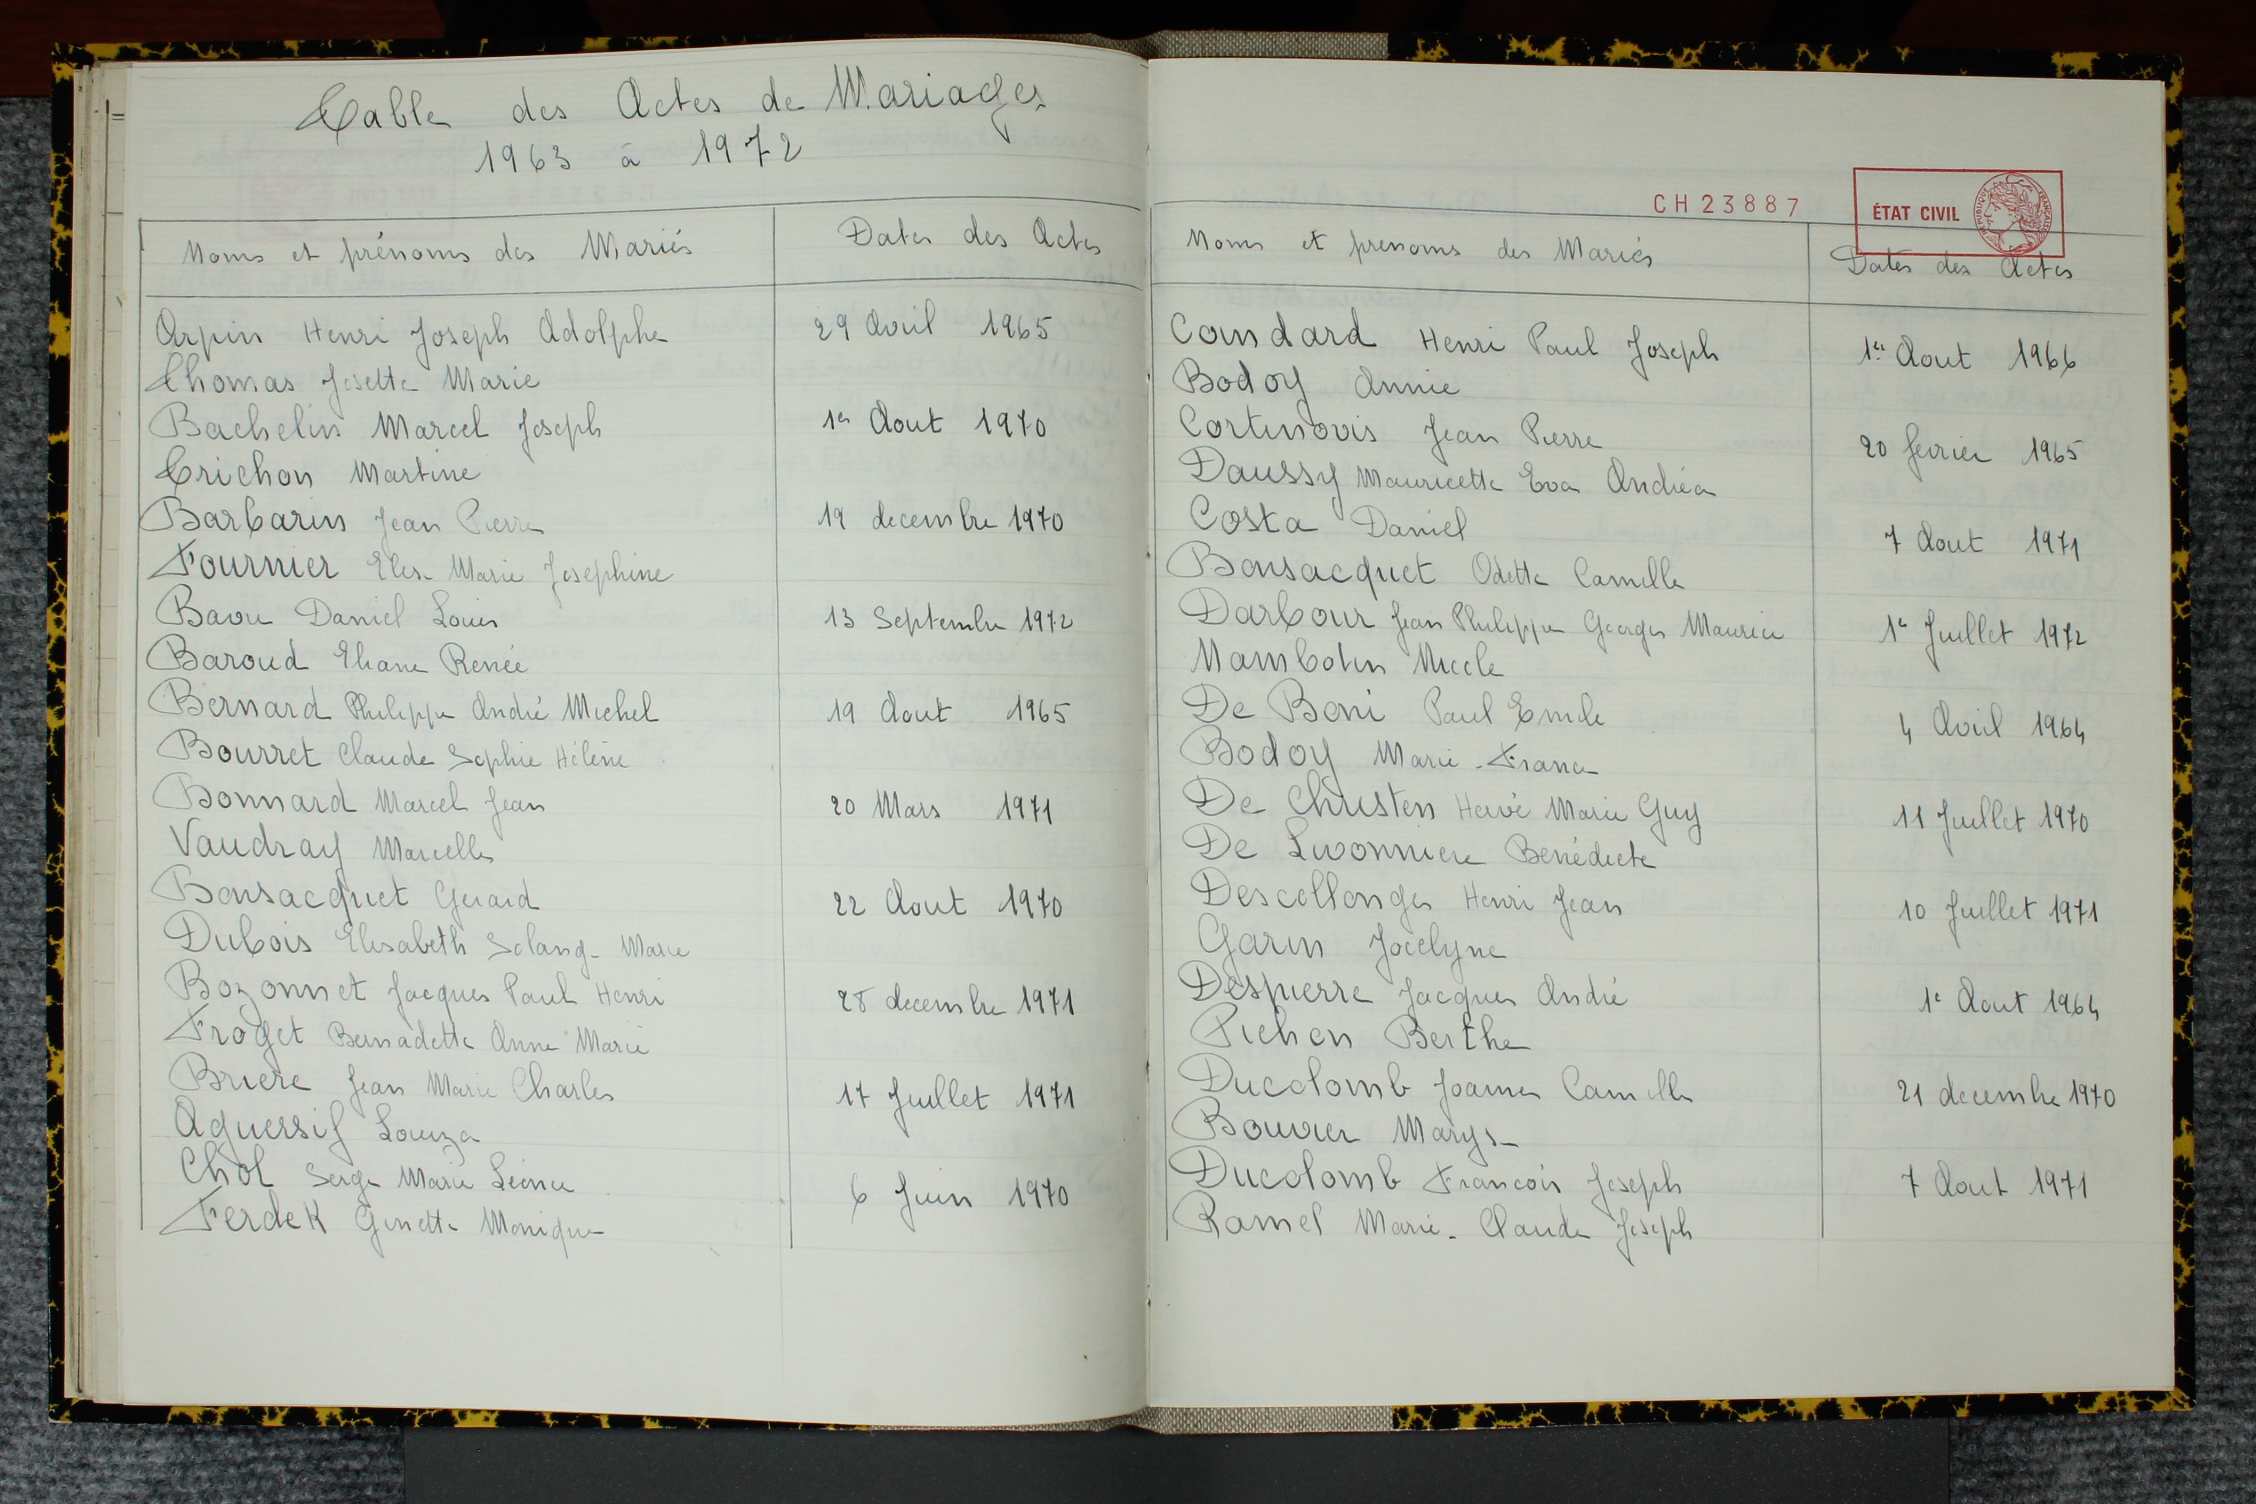 Table des Actes de Mariages
1963 à 1972
Noms et prénoms des Mariés Dates des Actes
Arpin Henri Joseph Adolphe 29 Avril 1965
Thomas Josette Marie
Bachelin Marcel Joseph 1er Aout 1970
Trichon Martine
Barbarin Jean Pierre 19 decembre 1970
Fournier Elise Marie Josephine
Bavu Daniel Louis 13 Septembre 1972
Baroud Eliane Renée
Bernard Philippe André Michel 19 Aout 1965
Bourret Claude Sophie Hélène
Bonnard Marcel Jean 20 Mars 1971
Vaudray Marcelle
Bonsacquet Gerard 22 Aout 1970
Dubois Elisabeth Solange Marie
Bozonnet Jacques Paul Henri 28 decembre 1971
Froget Bernadette Anne Marie
Briere Jean Marie Charles 17 Juillet 1971
Aguersif Louiza
Chol Serge Marie Léonce 6 Juin 1970
Ferdek Ginette Monique
CH23887
ÉTAT CIVIL
RÉPUBLIQUE FRANÇAISE
Noms et prenoms des Mariés Dates des Actes
Condard Henri Paul Joseph 1er Aout 1966
Bodoy Annie
Cortinovis Jean Pierre 20 fevrier 1965
Daussy Mauricette Eva Andréa
Costa Daniel 7 Aout 1971
Bonsacquet Odette Camille
Darbour Jean Philippe Georges Maurice 1e Juillet 1972
Mambotin Nicole
De Boni Paul Emile 4 Avril 1964
Bodoy Marie-France
De Christen Hervé Marie Guy 11 Juillet 1970
De Livonniere Benédicte
Descollonges Henri Jean 10 Juillet 1971
Garin Jocelyne
Despierre Jacques André 1e Aout 1964
Pichon Berthe
Ducolomb Joannes Camille 21 decembre 1970
Bouvier Maryse
Ducolomb Francois Joseph 7 Aout 1971
Ramel Marie-Claude Joseph